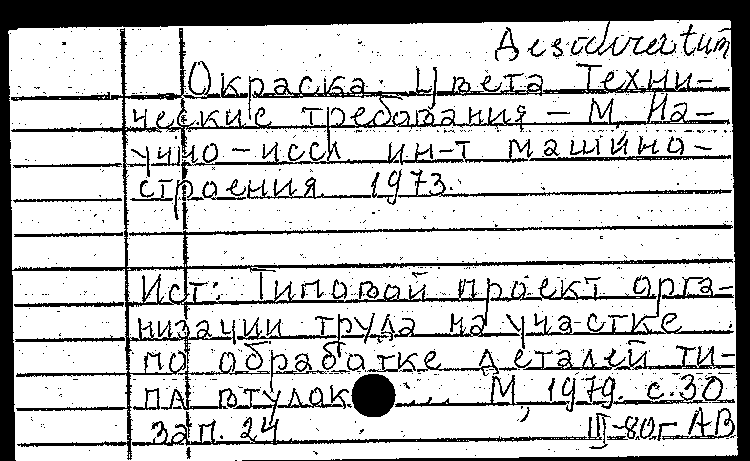 Desideratum
Окраска. Цвета Техни-
ческие требования - М, На-
учно-иссл ин-т машино-
строения 1973.
Ист: Типовой проект орга-
низации труда на участке
по обработке деталей ти-
па втулок ... М, 1979. с.30
зап. 24 III-80г. АВ